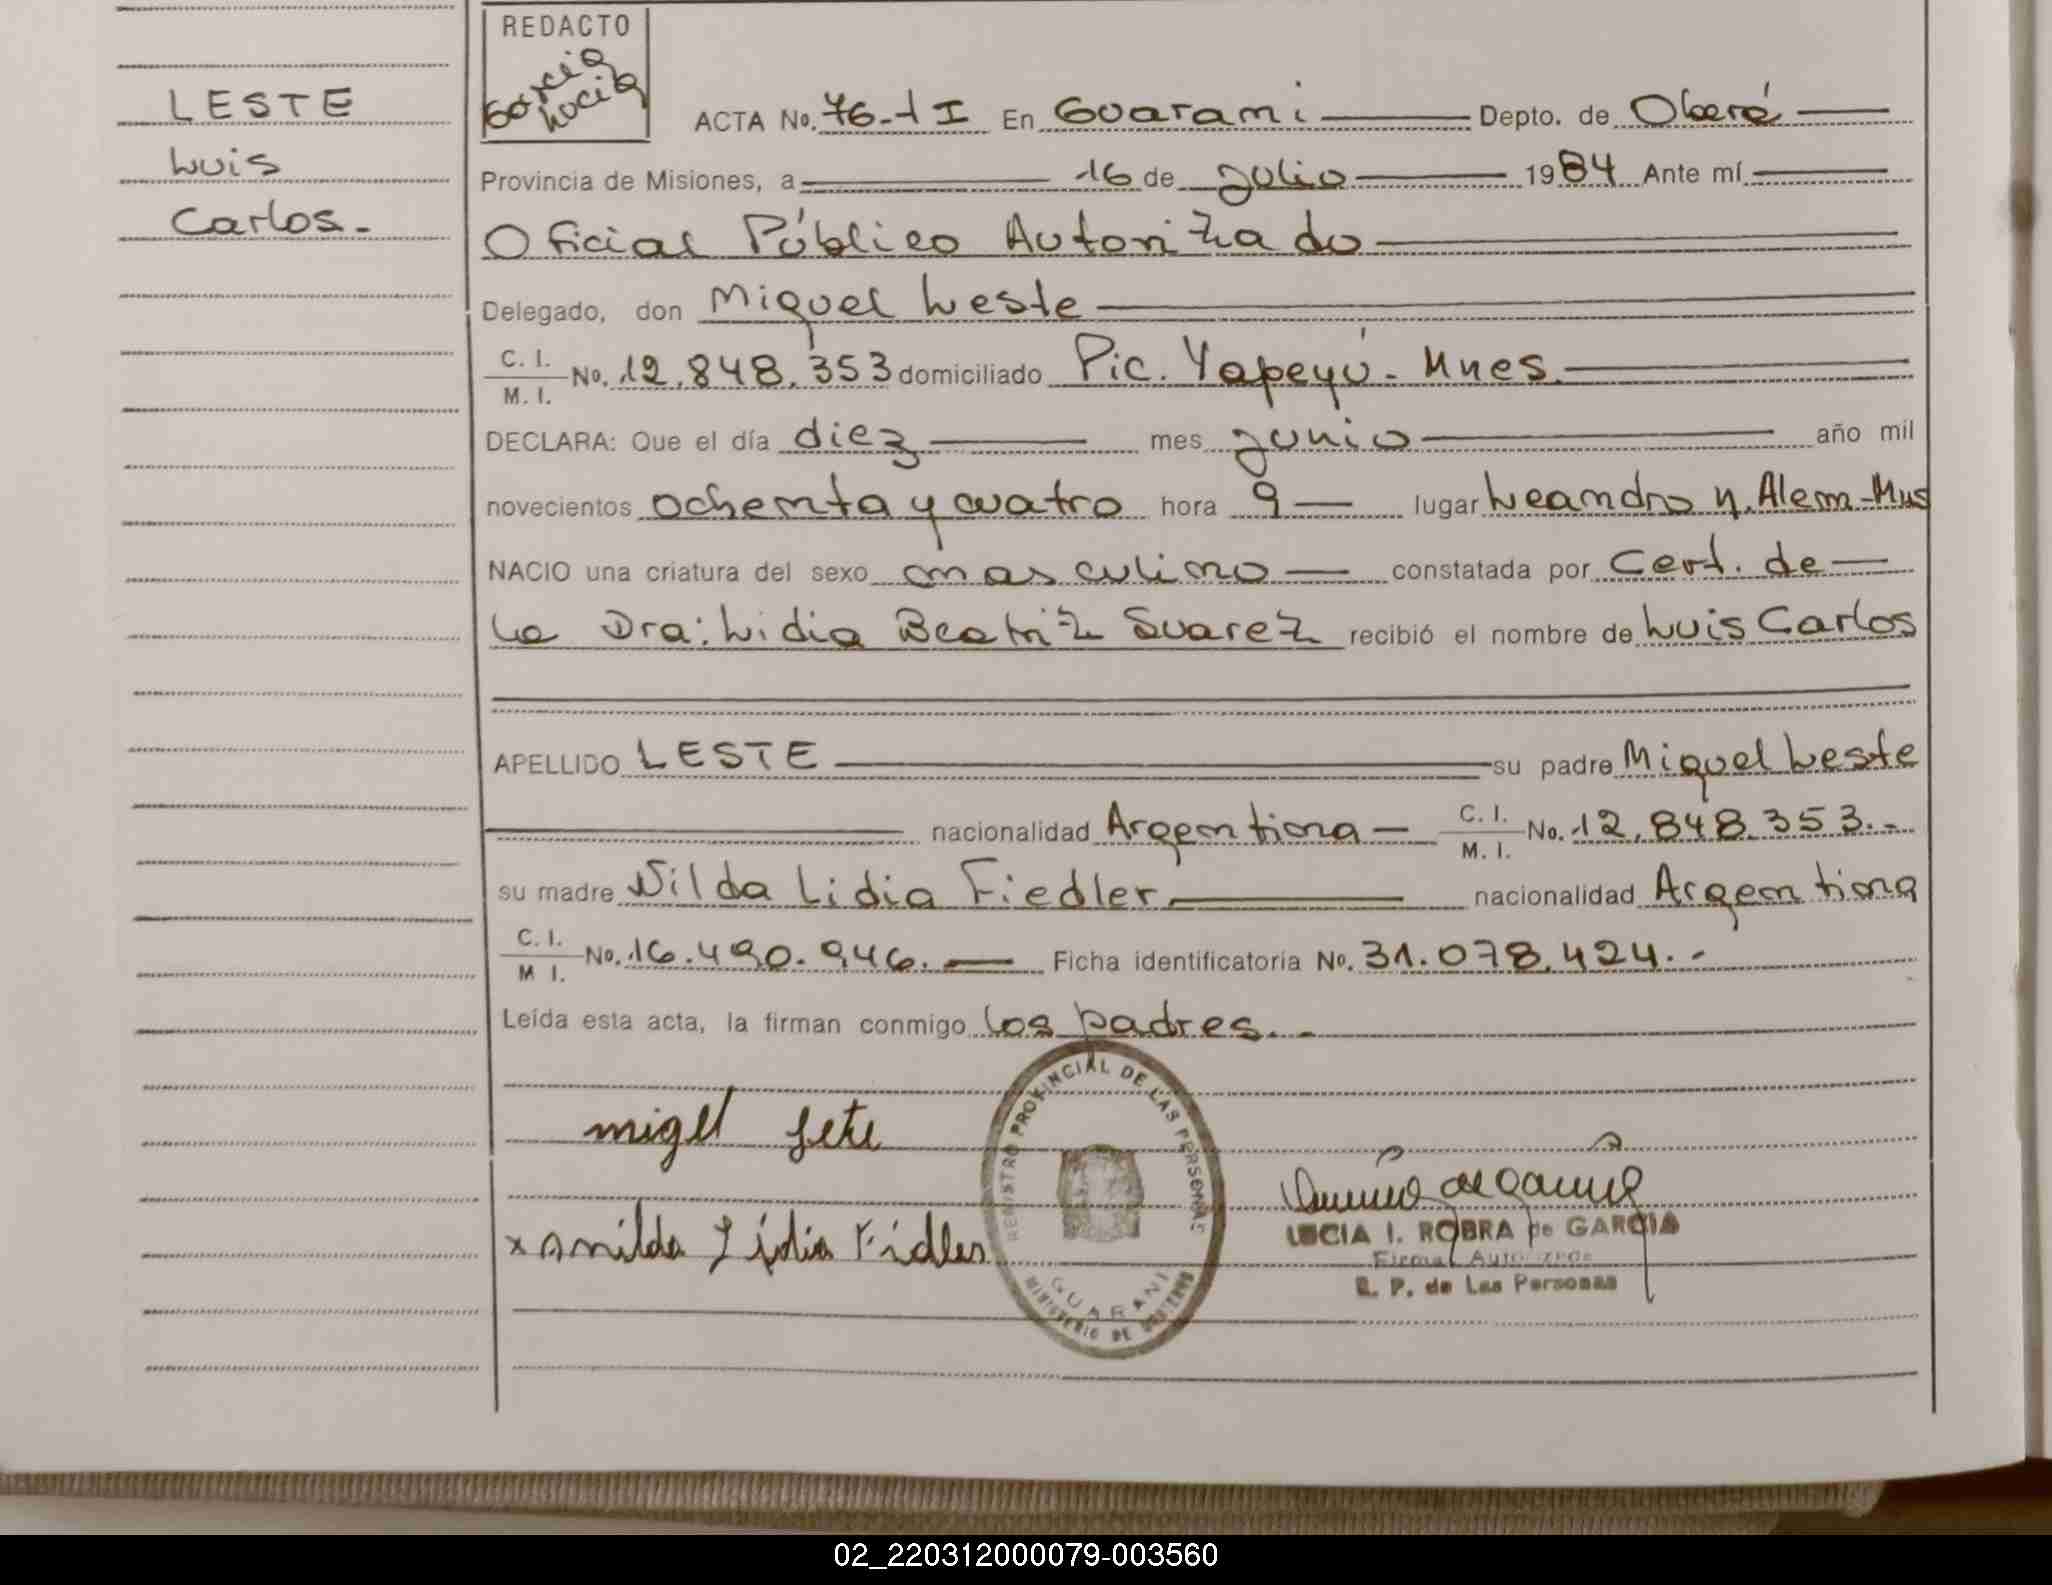 REDACTO
Garcia
Lucia
LESTE
Luis
Carlos.-
ACTA No. 76-1 I En Guarani Depto. de Oberá
Provincia de Misiones, a 16 de Julio 1984 Ante mí
Oficial Público Autorizado
Delegado, don Miguel Leste
C. I.
M. I.
No. 12.848.353 domiciliado Pic. Yapeyú - Mnes.
DECLARA: Que el día diez mes Junio año mil
novecientos ochenta y cuatro hora 9 lugar Leandro N. Alem - Mns
NACIO una criatura del sexo masculino constatada por Cert. de
la Dra: Lidia Beatriz Suarez recibió el nombre de Luis Carlos
APELLIDO LESTE su padre Miguel Leste
nacionalidad Argentina C. I.
M. I. No. 12.848.353.-
su madre Nilda Lidia Fiedler nacionalidad Argentina
C. I.
M I. No. 16.490.946. Ficha identificatoria No. 31.078.424.-
Leída esta acta, la firman conmigo los padres.-
REGISTRO PROVINCIAL DE LAS PERSONAS
GUARANI
MINISTERIO DE GOBIERNO
LUCIA I. ROBRA de GARCIA
Firma Autorizada
R. P. de Las Personas
02_220312000079-003560